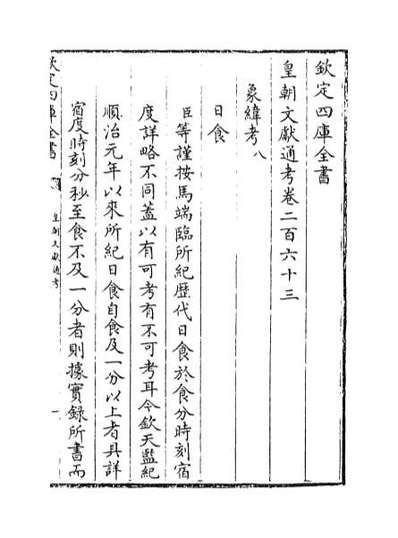 欽定四庫全書
皇朝文獻通考卷二百六十三
象緯考八
日食
臣等謹按馬端臨所紀歷代日食於食分時刻宿
度詳略不同蓋以有可考有不可考耳今欽天監紀
順治元年以來所紀日食自食及一分以上者具詳
宿度時刻分秒至食不及一分者則據實録所書而
欽定四庫全書
皇朝文獻通考
一